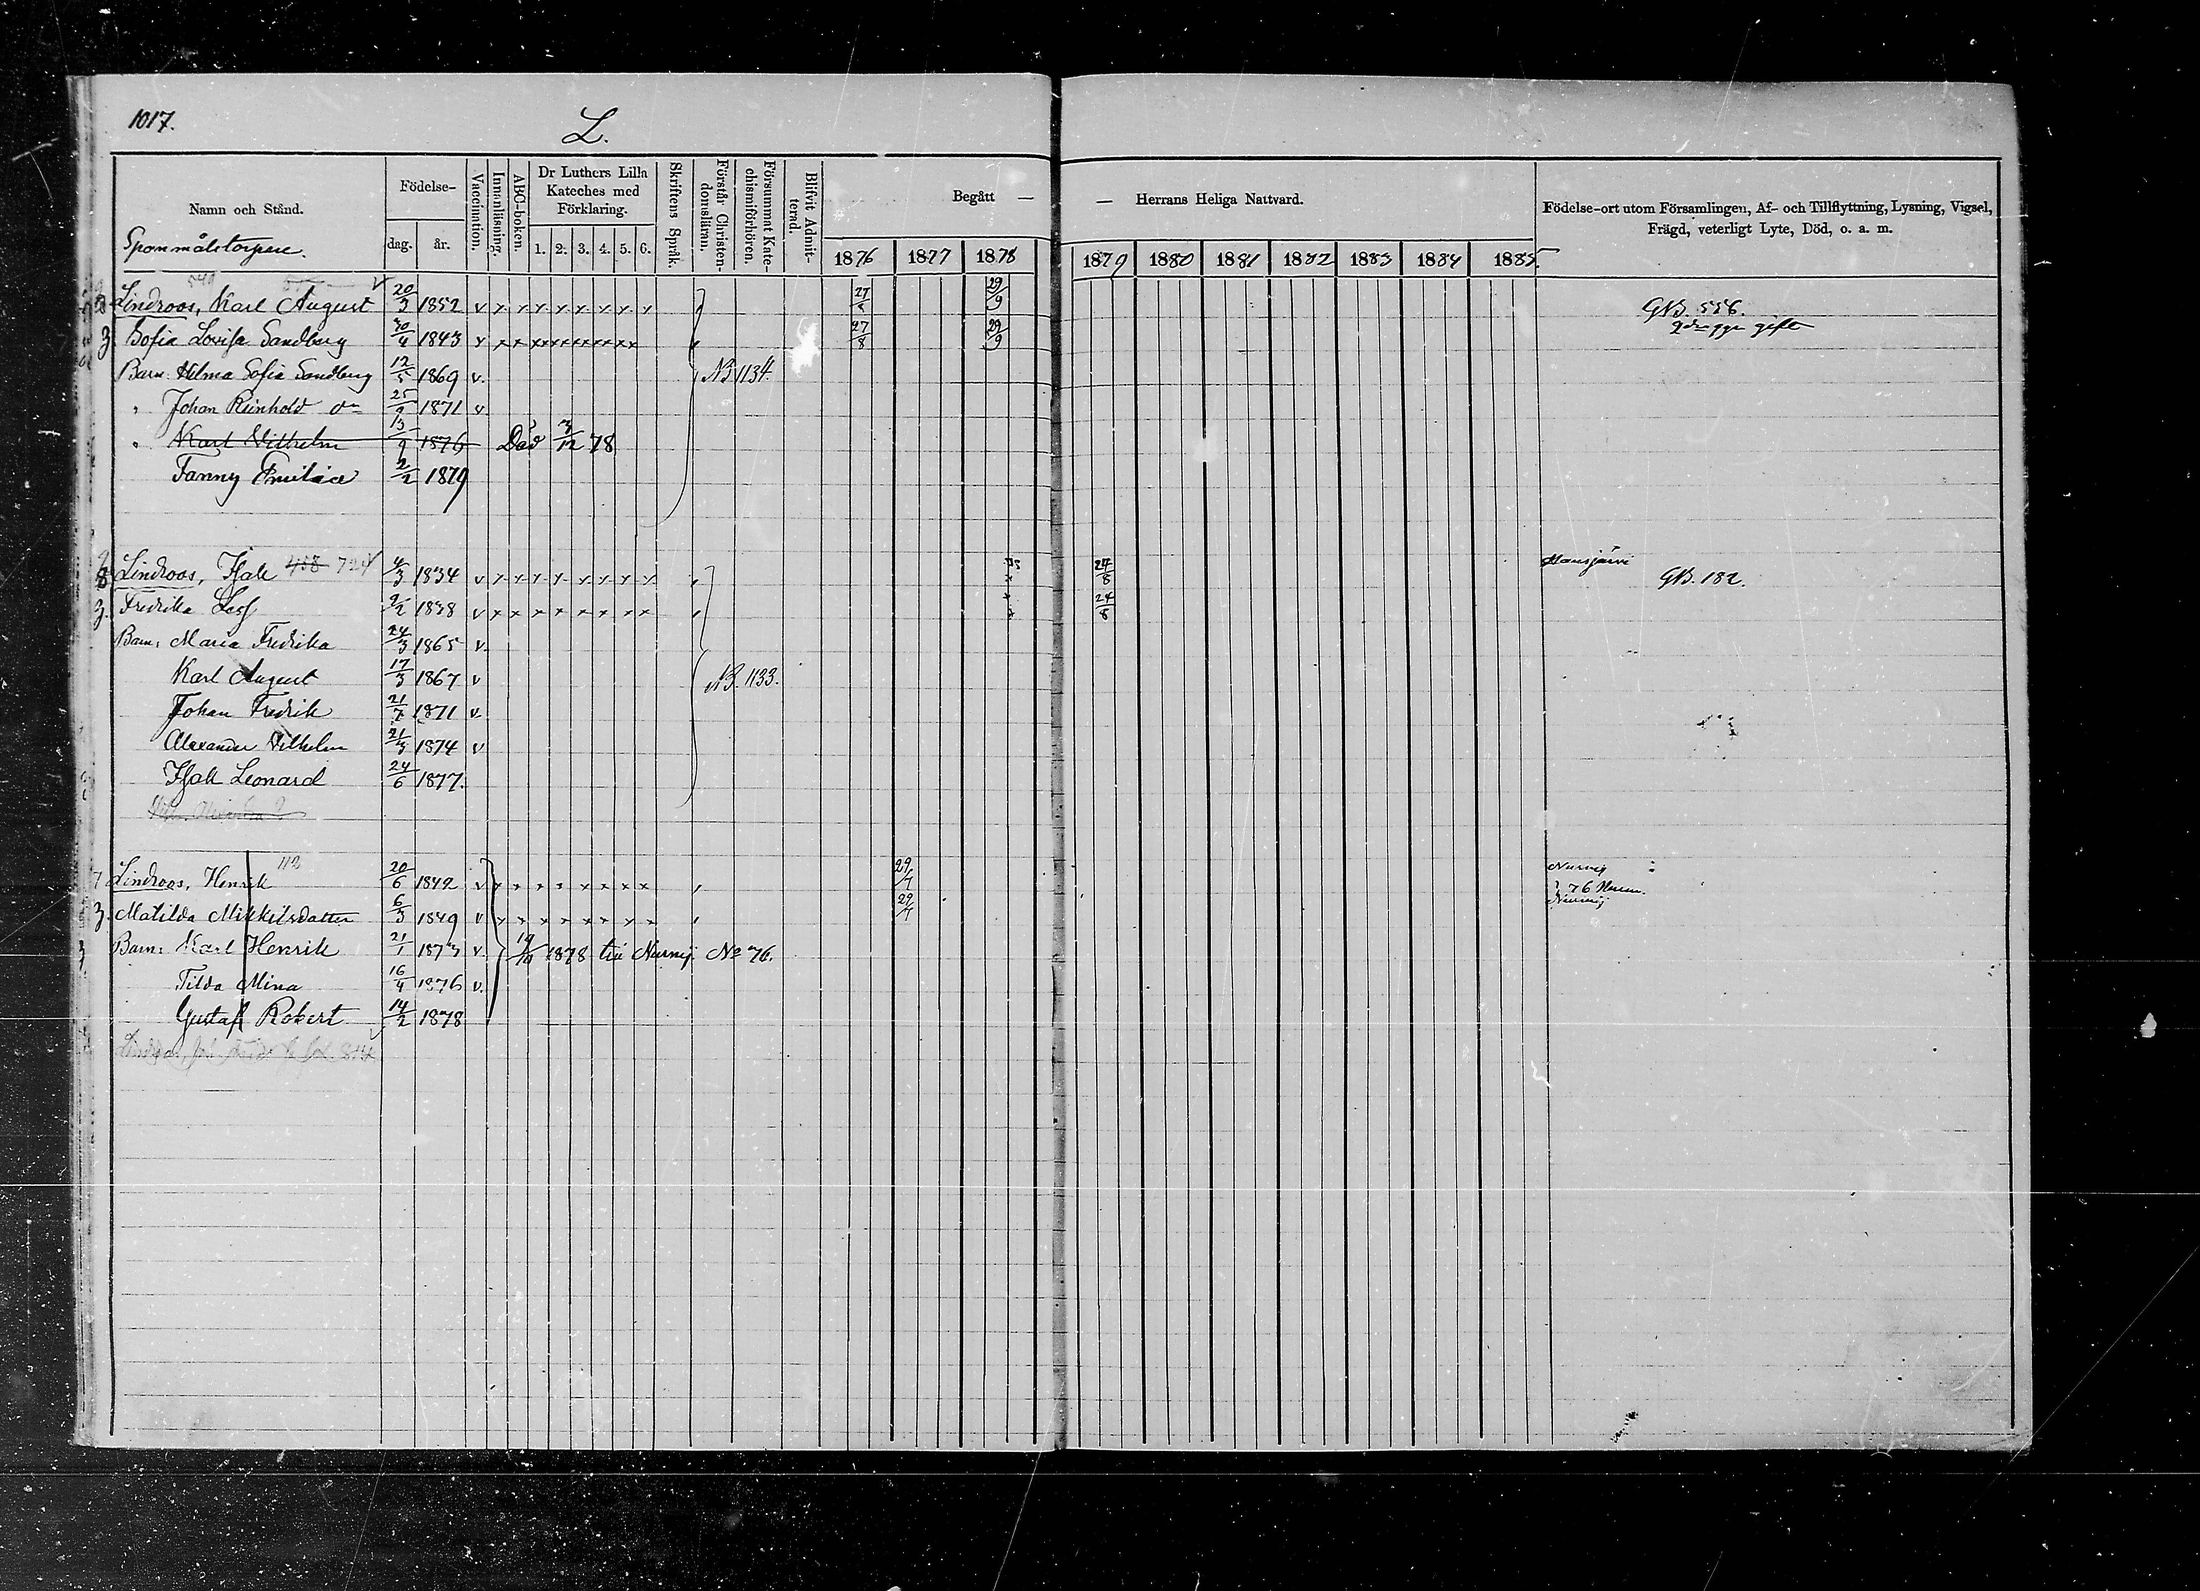 1017.
L.
Namn och Stånd.
Födelse-
dag.
år.
Vaccination.
Innanläsning.
ABC-boken.
Dr Luthers Lilla Kateches med Förklaring.
1. 2. 3. 4. 5. 6.
Skriftens Språk.
Förstår Christen-domsläran.
Försummat Kate-chismiförhören.
Blifvit Admit-terad.
Begått — — Herrans Heliga Nattvard.
1876 1877 1878 1879 1880 1881 1882 1883 1884 1885.
Födelse-ort utom Församlingen, Af- och Tillflyttning, Lysning, Vigsel, Frägd, veterligt Lyte, Död, o. a. m.
Spommålstorpare.
Lindroos, Karl August 20/3 1852 v x x x x x x x x 27/8 29/9 GB. 556.
3 Sofia Lovisa Sandberg 30/4 1843 v 27/8 29/9 gift
Barn Hilma Sofia Sandberg 12/5 1869 v. NB 1134.
" Johan Reinhold dn 25/9 1871 v
" Karl Vilhelm 13/9 1876 Död 3/12 78
Fanny Emilia 2/2 1879
Lindroos, Isak 458 724 4/3 1834 v x x x x x x x x 24/8 GB. 182.
3. Fredrika 9/2 1838 v x x x x x x x x 24/8
Barn: Maria Fredrika 24/3 1865 v.
Karl August 17/3 1867 v NB. 1133.
Johan Fredrik 21/7 1871 v.
Alexander Vilhelm 21/3 1874 v
Isak Leonard 24/6 1877.
Lindroos, Henrik 112 20/6 1842 v x x x x x x x x 29/7 Nurmij
3. Matilda Mikkelsdatter 6/3 1849 v x x x x x x x x 29/7 76 Nurmij
Barn: Karl Henrik 21/1 1873 v. 19/11 1878 till Nurmij No 76.
Tilda Mina 16/4 1876 v.
Gustaf Robert 14/2 1878